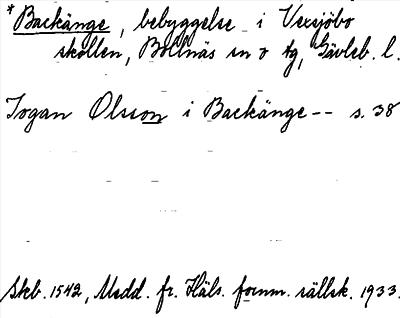 *Backänge, bebyggelse i Vexsjöbo
skollen, Bollnäs sn o tg, Gävleb. l.
Jogan Olsson i Backänge -- s. 38
Skb. 1542, Medd. fr. Häls. fornm. sällsk. 1933.